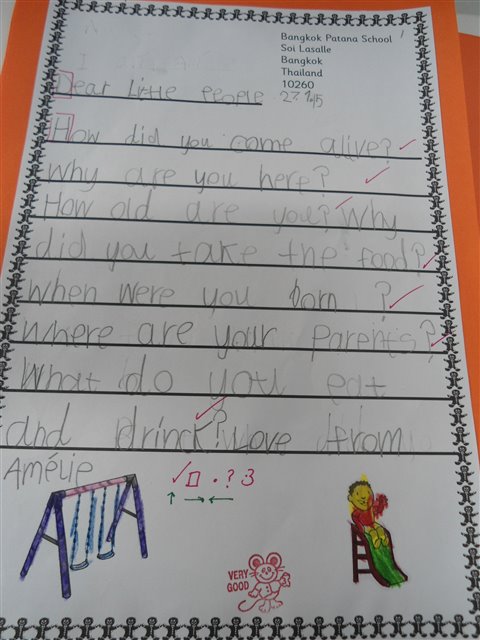 Bangkok Patana School
Soi Lasalle
Bangkok
Thailand
10260
Dear little people
How did you come alive?
Why are you here?
How old are you? Why
did you take the food?
When were you born ?
Where are your parents?
What do you eat
and drinck? Love from
Amélie
. ? 3
VERY
GOOD